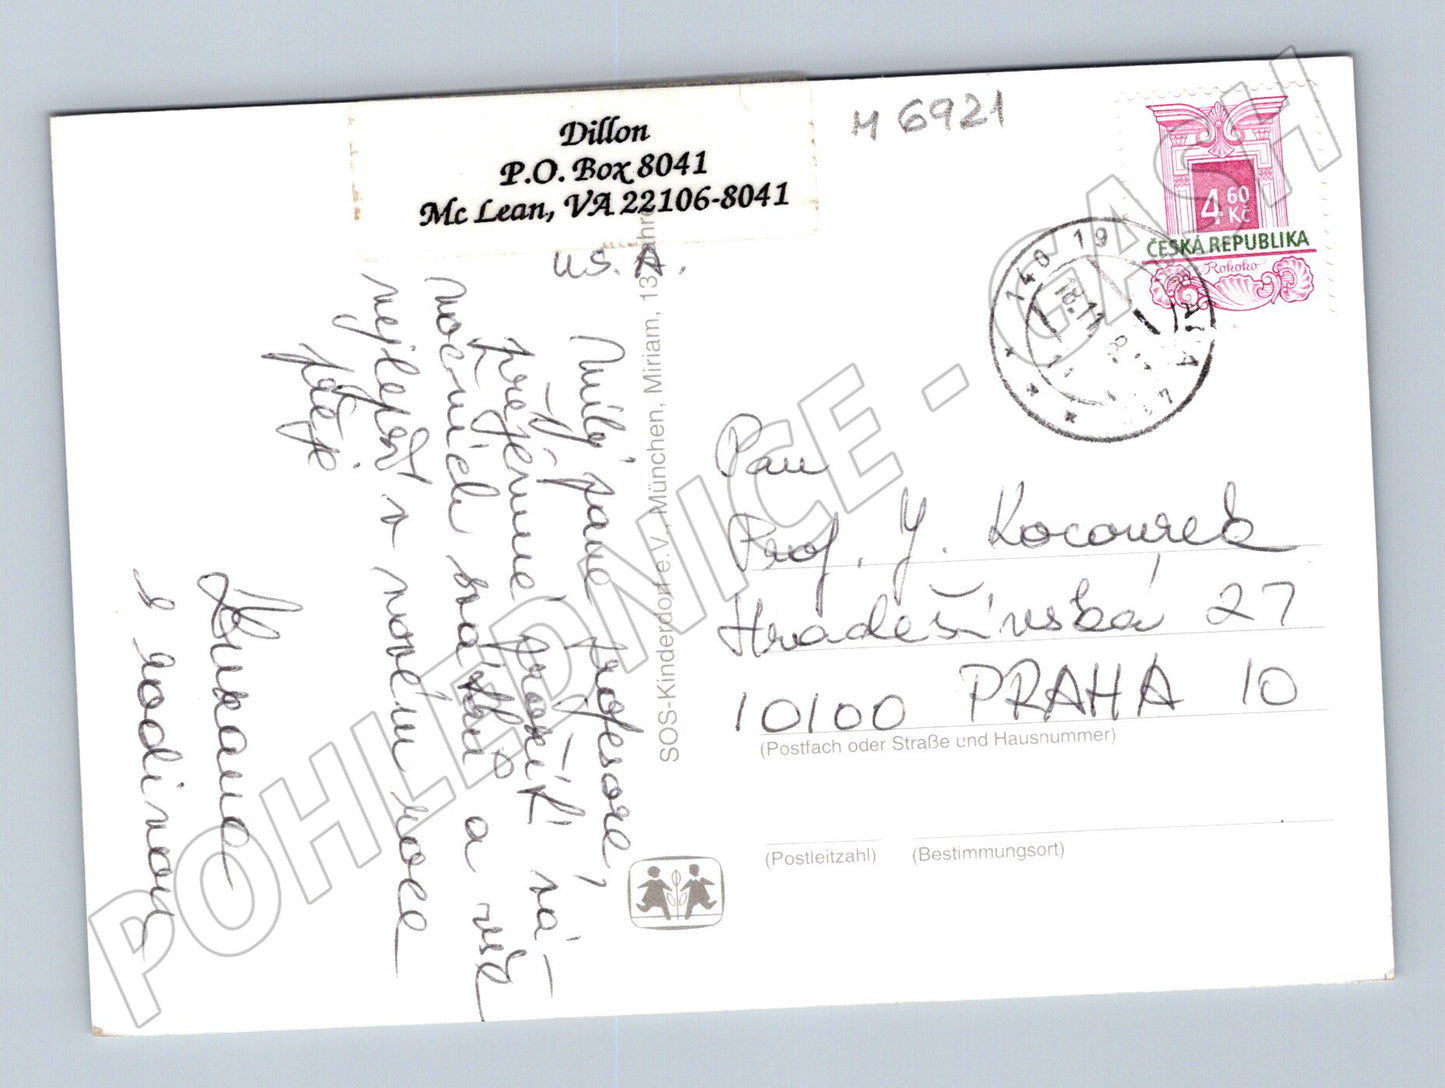 Dillon
P.O. Box 8041
Mc Lean, VA 22106-8041
U.S.A.
M 6921
4 60 Kč
ČESKÁ REPUBLIKA
Rokoko
140 19
18.11
Milý pane profesore,
přejeme Vám prožití vá-
nočních svátků a vše
nejlepší v novém roce
s rodinou
SOS-Kinderdorf e.V., München, Miriam, 13 Jahre
Pan
Prof. J. Kocourek
Hradešínská 27
10100 PRAHA 10
(Postfach oder Straße und Hausnummer)
(Postleitzahl) (Bestimmungsort)
POHLEDNICE - CASH